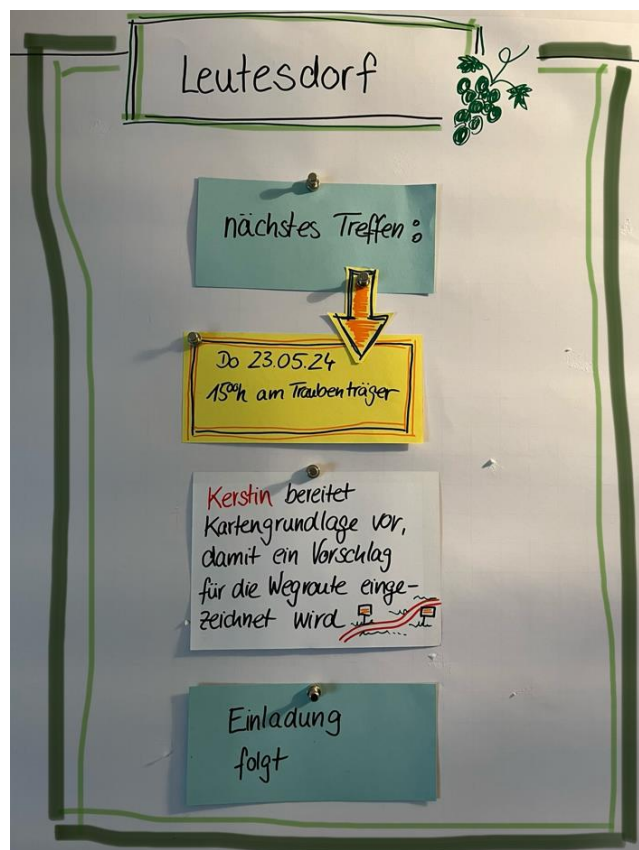 Leutesdorf
nächstes Treffen:
Do 23.05.24
15⁰⁰h am Traubenträger
Kerstin bereitet
Kartengrundlage vor,
damit ein Vorschlag
für die Wegroute einge-
zeichnet wird
Einladung
folgt